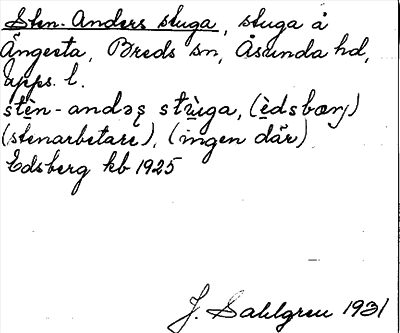 Sten-Anders stuga, stuga å
Ängesta, Breds sn, Åsunda hd,
Upps. l.
stèn-andəʂ stùga, (èdsbærj)
(stenarbetare), (ingen där)
Edsberg kb 1925
J. Sahlgren 1931